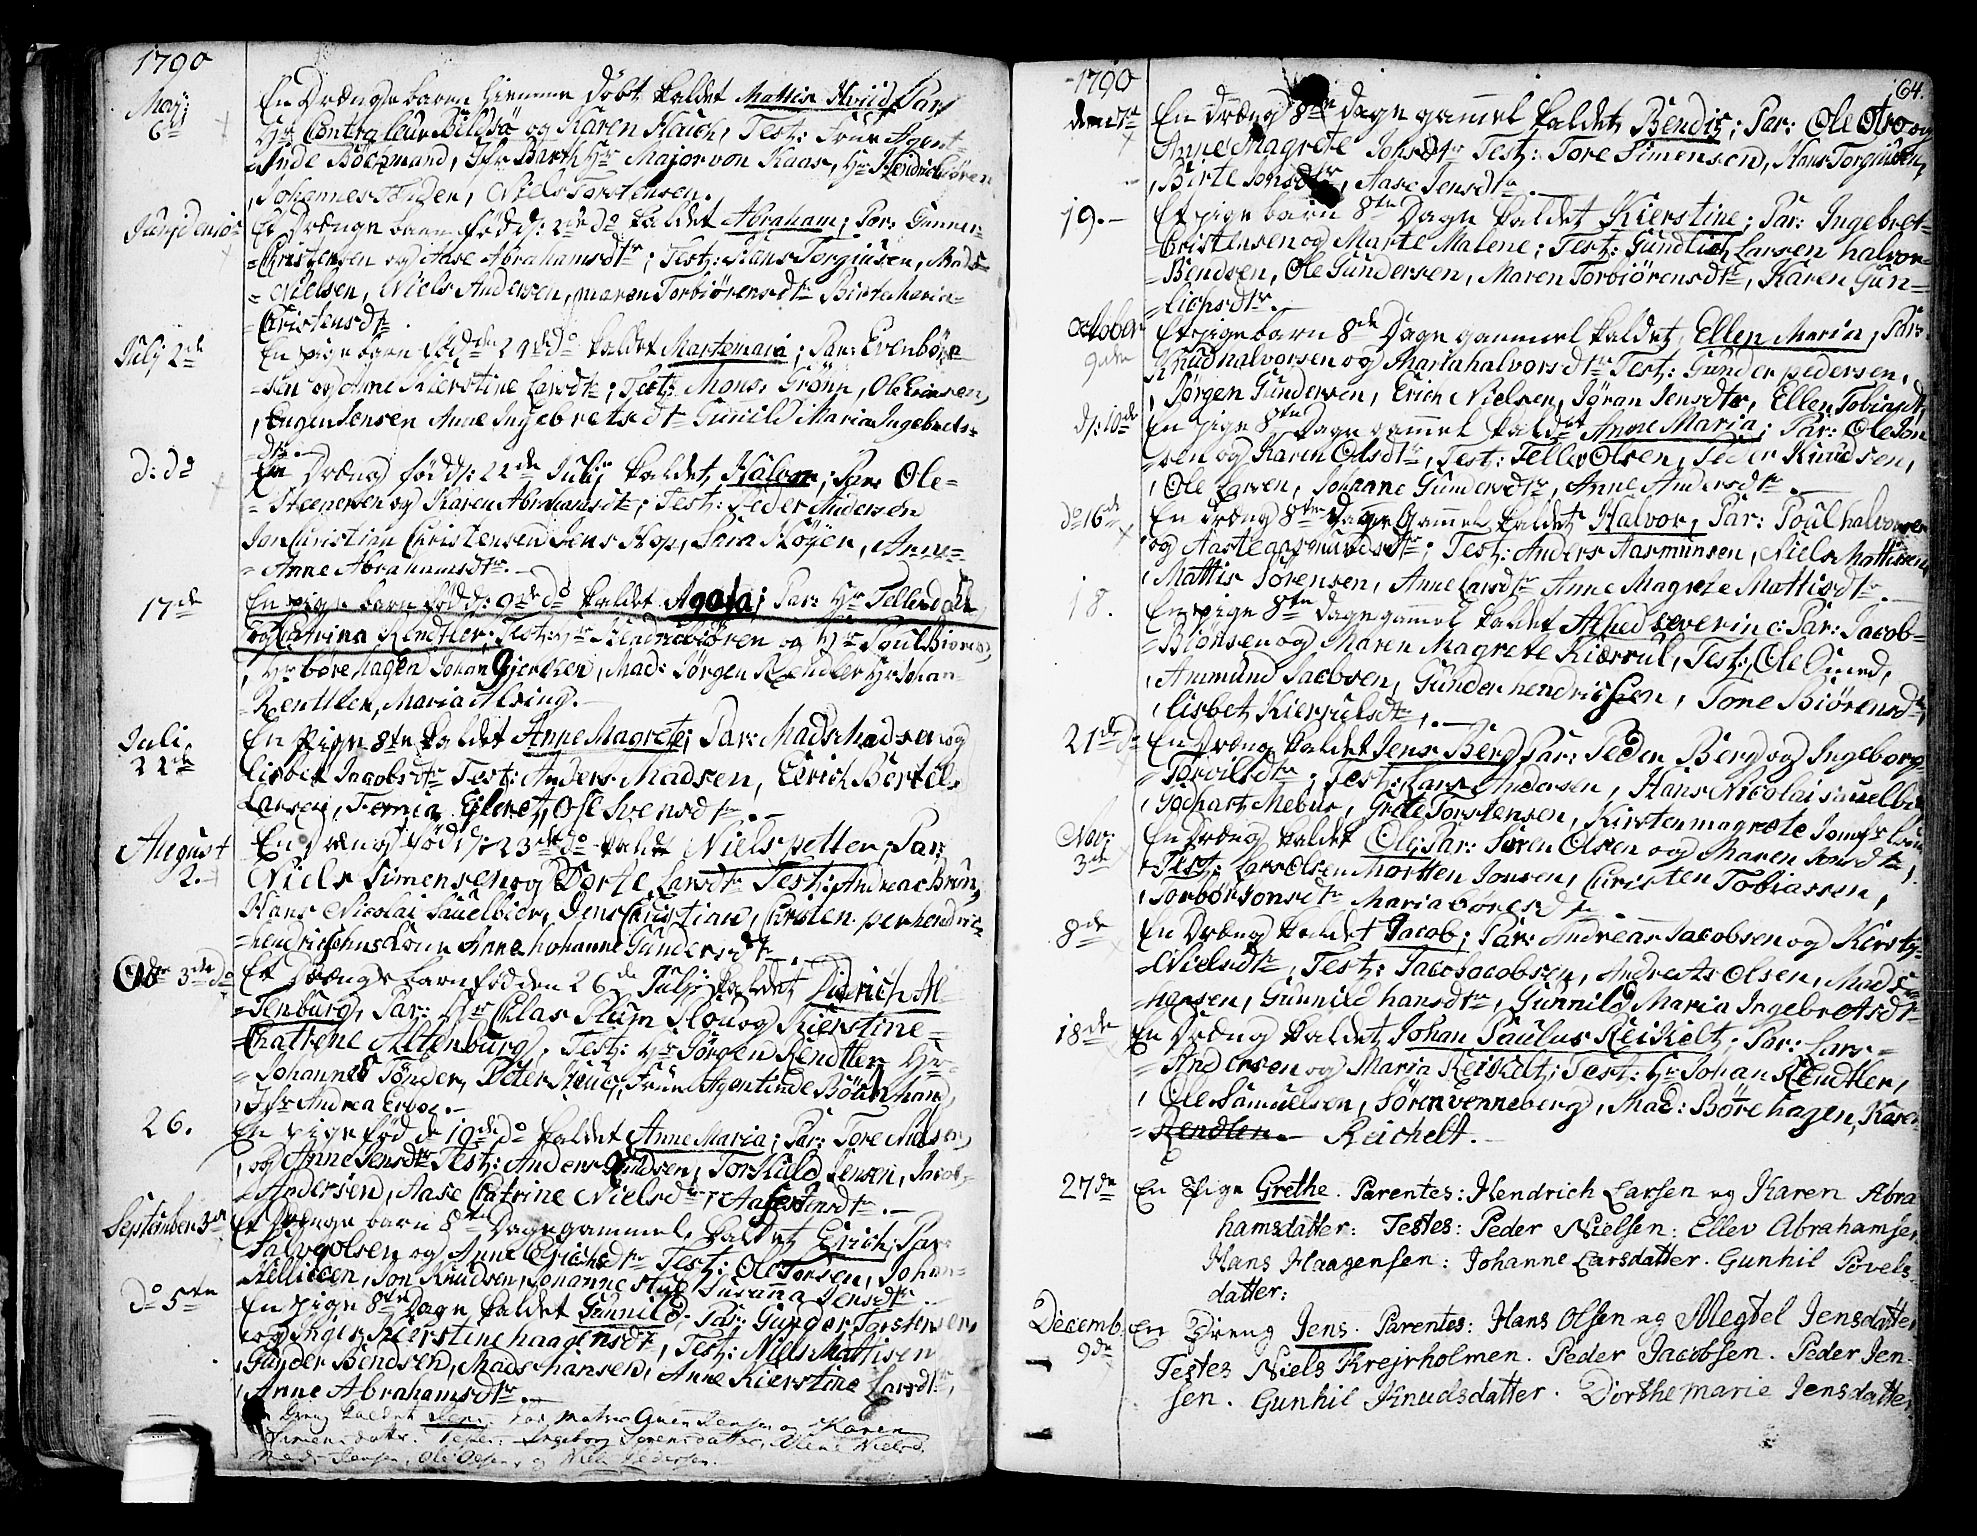 1790
Maji 6te En Drænge barn hiemme döbt kaldet Mattis Hviid, Par:
Hr Controlleur Bildsö og Karen Hauch, Test: Frue Agent-
inde Böckmand, Jfr Barth Hr Major von Kaas, Hr Hendrich Biören
Johannes Tönder, Niels Torstensen.
Junj den 10de Et Drænge barn föd d: 2de do kaldet Abraham; Par: Gunner-
Christensen og Aase Abrahamsdtr; Test: Hans Torgiusen, Mads-
Nielsen, Niels Andersen, maren Torbiörensdtr Birte Maria-
Christensdtr.
Julj 2de En pige barn föd den 29de do kaldet Marte maria; Par: Even
sen og Ane Kierstine Larsdtr; Test: Mons: Grönn, Ole Evensen,
Jensen Anne Ingebretsdtr Gunild Maria Ingebrets-
dtr.
d: do En Dræng föd d: 22de Julj kaldet Halvor; Par: Ole-
Steenersen og Karen Abrahamsdtr; Test: Peder Andersen
Jon Christian Christensen Jens Hop, Sara Höyer, Anne-
Anne Abrahamsdtr.
17de En pige barn föd d: 9de do kaldet Agata; Par: Hr Tellef Dahl
og Catrina Rendtler; Test: Hr Hendrich Biören og Hr Poul Biören,
Hr böre hagen Johan Gjertsen, Mad: Jörgen Rendtler Hr Johan
Renttler, Maria Alsing.
Juli 22de En Pige 8te kaldet Anne Magrete; Par: Mads Madsen og
Lisbet Jacobsdtr Test: Anders Madsen, Erich Bertels
Larsen, Eilert, Ose Svensdtr.
August 2. En dræng föd d: 23de do kaldet Niels petter, Par:
Niels Simensen og Dorte Larsdtr Test: Andreas Brun,
Hans Nicolai Sauelbier, Jens Christian, Christen per hendric
Anne Johanne Gundersdtr.
3de do Et Drænge barn föd den 26de Julj kaldet Didrich Al-
tenburg, Par: Hr Clas Plum Ploug og Kierstine-
Chatrene Altenburg, Test: Hr Jörgen Rendtler Hr-
Johannes Tönder, Peter Frue Agentinde Böckmand,
Jfr Andrea
26. En pige föd d 19de do kaldet Anne Maria; Par: Tore Nielsen,
og Anne Jensdtr Test: Anders Knudsen, Torkuld Jensen, Jacob-
Andersen, Aase Catrine Nielsdtr, Aase Jensdtr.
September 3de Et Drænge barn 8te Dage gammel, kaldet Erich; Par
Salve olsen og Anne Erichsdtr Test: Ole Torsen, Johan-
Jon Knudsen, Johanne Susanna Jensdtr
Do 5te En pige 8te Dage kaldet Gunnild; Par: Gunder Torstensen,
og Inger Kierstine haagensdtr, Test: Niels Mattisen
Gunder Bendsen, Mads hansen, Anne Kierstine Larsdtr,
Anne Abrahamsdtr.
En Dreng kaldet Jens Par: Jensen og Karen
Simensdatter Testes: Ingeborg Sørensdatter, Nielsd.
Mads Jensen, Ole Olsen, og Niels Pedersen.
1790
64.
den 7de En dræng 8te Dage gammel kaldet Bendix; Par: Ole Olso og
Anne Magrete Jonsdtr Test: Tore Simensen, Hans Torgiusen,
Birte Jonsdtr, Aase Jensdtr.
19. Et pige barn 8te Dage kaldet Kierstine; Par: Ingebret-
Christensen og Marte Malene; Test: Gundlich Larsen halvor-
Bendsen, Ole Gundersen, Maren Torbiörensdtr, Karen Gun-
lichsdtr.
October 9de Et pige barn 8de Dage gammel kaldet, Ellen Maria, Par:
Knud halvorsen og Maria halvorsdtr Test: Gunder pedersen,
Jörgen Gundersen, Erich Nielsen, Jöran Jensdtr, Ellen Tobiasdtr
d: 10de En pige 8te Dage gammel kaldet Anne Maria; Par: Ole Jon
sen og Karen Olsdtr, Test: Tellev Olsen, Peder Knudsen,
Ole Larsen, Johanne Gundersdtr, Anne Andersdtr.
do 16de En dræng 8te Dage Gammel kaldet Halvor, Par: Poul halvorsen
og Aaste aasmundsdtr; Test: Anders Aasmunsen, Niels Mattisen
Mattis Sörensen, Anne Larsdtr Anne Magrete Mattisdtr.
18. En pige 8te dage gammel kaldet Alhed severine: Par: Jacob-
Biönsen og Maren Magrete Kierrul, Test: Ole
Ammund Jacobsen, Gunder hendrichsen, Tone Biörensdtr,
lisbet Kierrulsdtr.
21de do En Dræng kaldet Jens Berg Par: Peder Berg og Ingeborg-
Test: Lars Andersen, Hans Nicolai sauelbier,
Godhart Mebur, Grete Torstensen, Kirsten magrete Jomfr
Nov: 3de En Dræng kaldet Ole; Par: Sören Olsen og Maren Jonsdtr,
Test: Lars Olsen Mortten Jonsen, Christen Tobiassen,
Torbör Jonsdtr Maria dtr.
8de En Dræng kaldet Jacob; Par: Andreas Jacobsen og Kirsty-
Nielsdtr, Test: Jaco Jacobsen, Andreas Olsen, Mads-
Hansen, Gunnild hansdtr, Gunnild Maria Ingebretsdtr
18de En Dræng kaldet Johan Paulus Reikelt; Par: Lars-
Andersen og Maria Reikelt; Test: Hr Johan Rendtler,
Ole Samuelsen, Sören venneberg, Mad: Börehagen, Karen
Rendler. Reichelt.
27de En Pige Grethe. Parentes: Hendrich Larsen og Karen Abra
hamsdatter: Testes: Peder Nielsen: Ellev Abrahamsen,
Hans Haagensen: Johanne Larsdatter. Gunhil Povels-
datter:
Decemb. 9de En Dreng Jens. Parentes: Hans Olsen og Megtel Jensdatter
Testes Niels Krejrholmen. Peder Jacobsen. Peder Jen-
sen. Gunhil Knudsdatter. Dorthe marie Jensdatter.